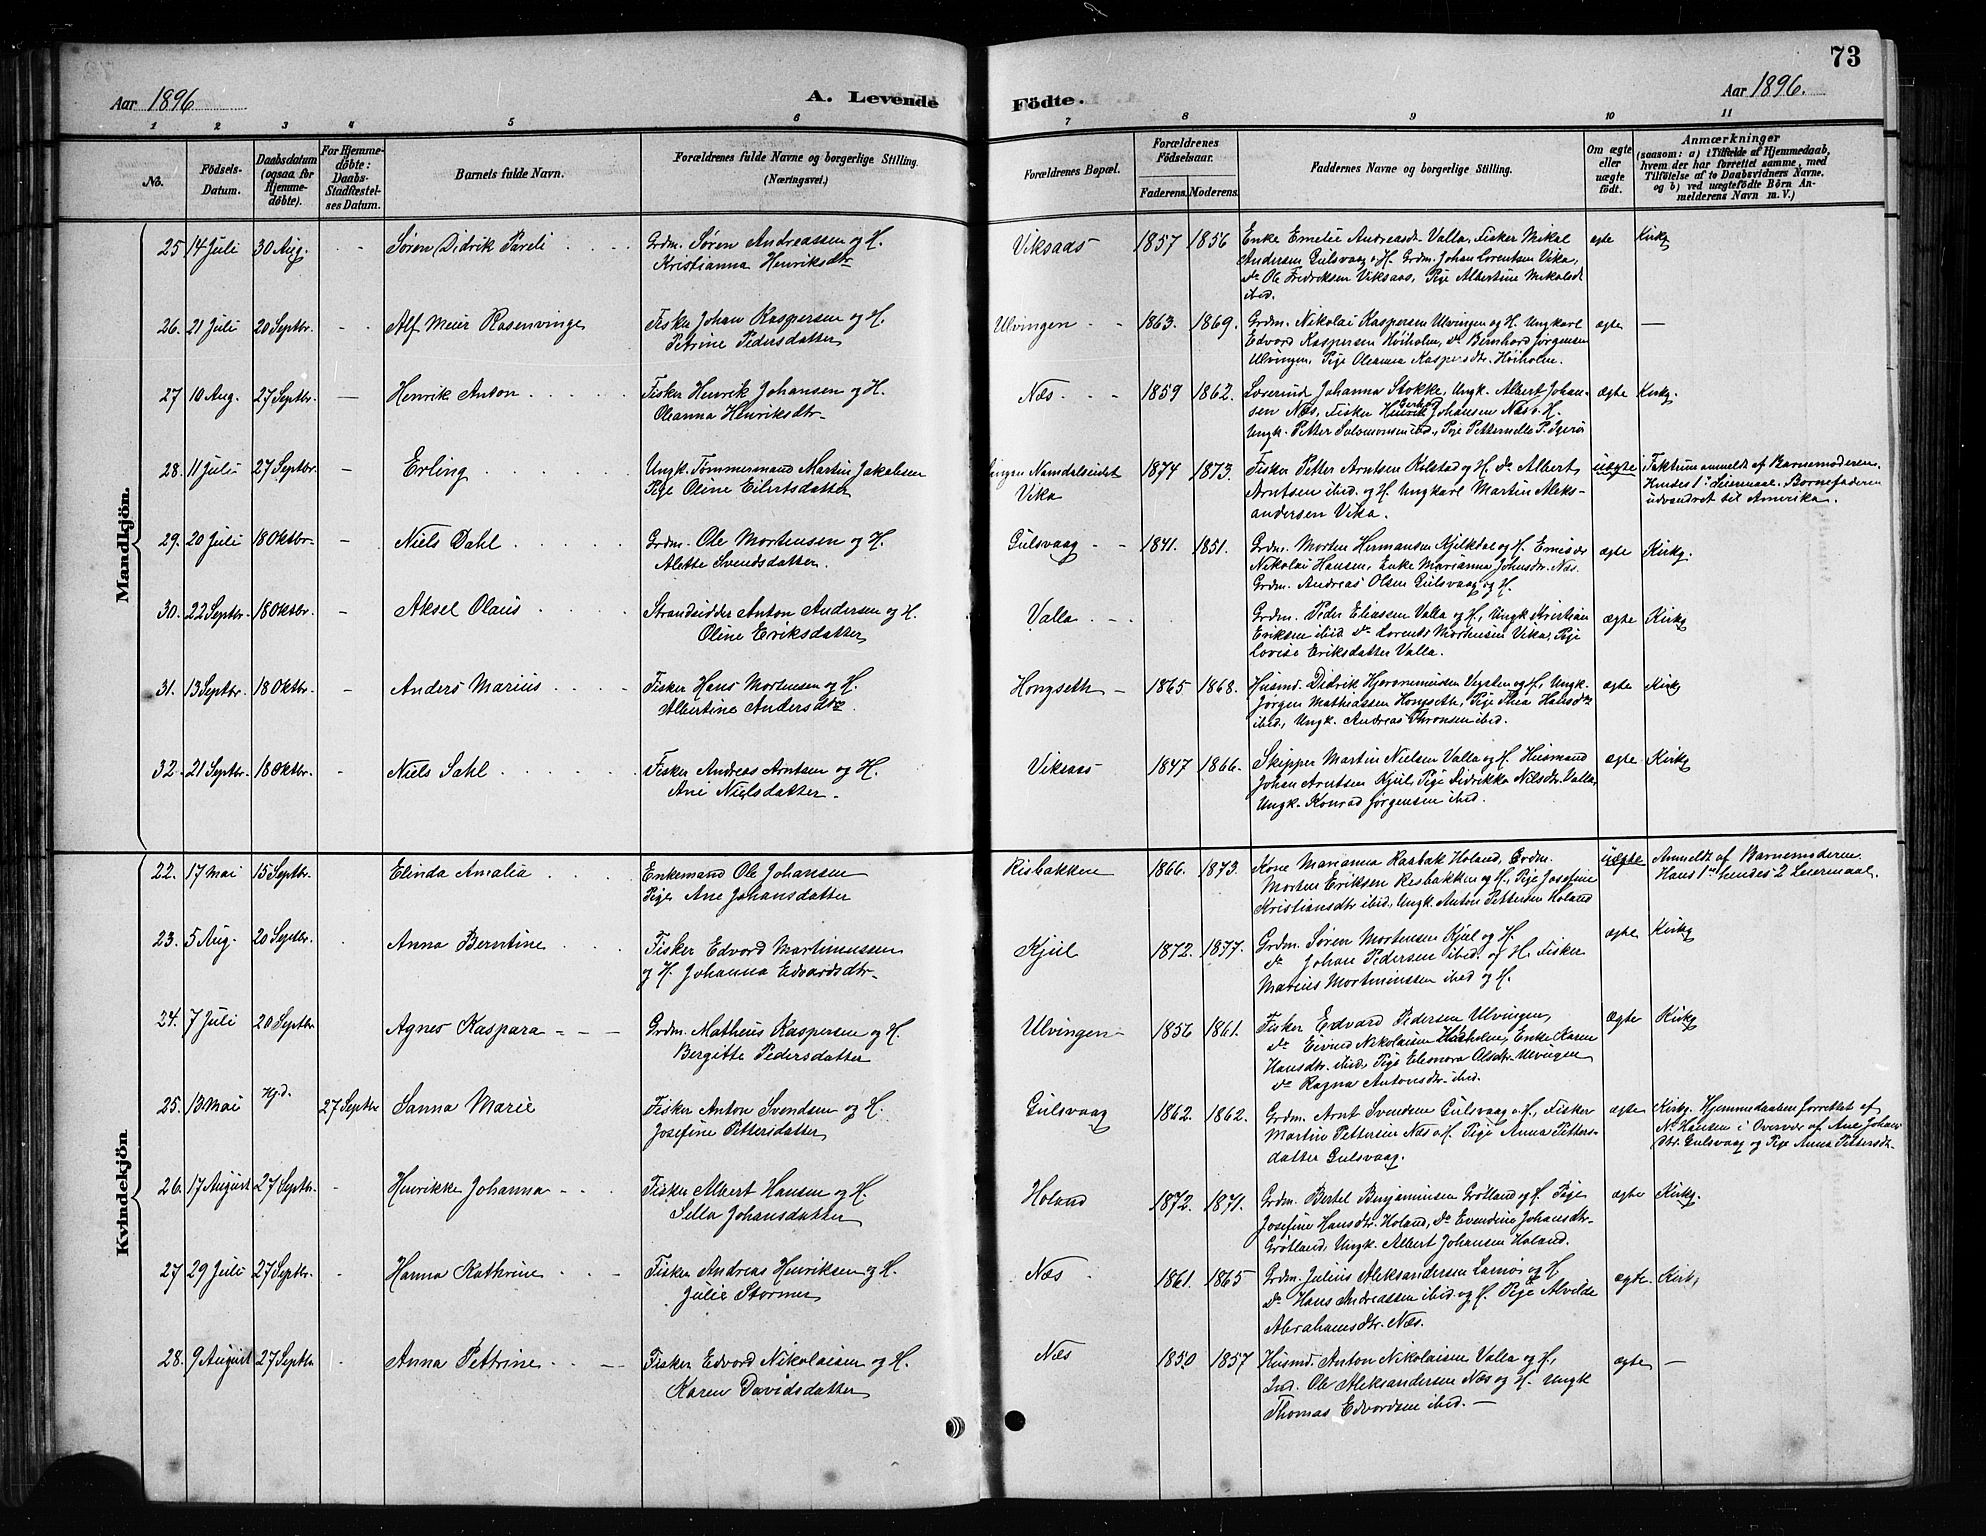 73
Aar 1896. A. Levende Födte. Aar 1896.
1 2 3 4 5 6 7 8 9 10 11
No.
Födsels-
Datum.
Daabsdatum
(ogsaa for
Hjemme-
døbte).
For Hjemme-
døbte:
Daabs-
Stadfæstel-
ses Datum.
Barnets fulde Navn.
Forældrenes fulde Navne og borgerlige Stilling.
(Næringsvei.)
Forældrenes Bopæl.
Forældrenes
Födselsaar.
Faderens. Moderens.
Faddernes Navne og borgerlige Stilling.
Om ægte
eller
uægte
født.
Anmærkninger
(saasom: a) i Tilfælde af Hjemmedaab,
hvem der har forrettet samme, med
Tilföielse af to Daabsvidners Navne,
og b) ved uægtefödte Börn An-
melderens Navn m. V.)
Mandkjön.
25 14 Juli 30 Aug. - - Søren Didrik Pareli Grdm. Søren Andreassen og H.
Kristianna Henriksdtr
Viksaas 1857 1856 Enke Emelie Andreasdr Valla, Fisker Mikal
Andersen Gulsvaag o H. Grdm. Johan Lorentsen Vika,
do Ole Fredriksen Viksaas, Pige Albertine Mikalsdt
ibid.
ægte Kirkg
26. 21 Juli 20 Septbr. - - Alf Meier Rosenvinge Fisker Johan Kaspersen og H.
Petrine Pedersdatter
Ulvingen 1863. 1869. Grdm. Nikolai Kaspersen Ulvingen og H. Ungkarl
Edvard Kaspersen Høiholm, do Bernhard Jørgensen
Ulvingen, Pige Oleanna Kaspersdtr. Høiholm.
ægte —
27 10 Aug. 27 Septbr. — Henrik Anton Fisker Henrik Johansen og H.
Oleanna Henriksdtr
Næs 1859 1862. Lærerinde Johanna Stokke, Ungk. Albert Johan-
sen Næs, Fisker Henrik Johansen Næs o H.
Ungk. Petter Salomonsen ibid., Pige Petternelle P. Igerø
ægte Kirkg.
28. 11 Juli 27 Septbr. — Erling Ungk. Tømmermand Martin Jakobsen
Pige Oline Eilertsdatter
Namdalseidet
Vika
1874 1873. Fisker Petter Arntsen Kolstad og H. do Albert
Arntsen ibid. og H. Ungkarl Martin Aleks-
andersen Vika.
uægte Faktum anmeldt af Barnemoderen.
Hendes 1ste Leiermaal. Barnefaderen
udvandret til Amerika.
29. 20 Juli 18 Oktbr. — Niels Dahl Grdm. Ole Mortensen og H.
Alette Svendsdatter.
Gulsvaag 1841. 1851. Grdm. Morten Hermansen Kjilkdal og H.
Nikolai Hansen, Enke Marianna Johnsdtr. Næs.
Grdm. Andreas Olsen Gulsvaag og H.
ægte Kirkg.
30. 22 Septbr. 18 Oktbr. — Aksel Olaus Strandsidder Anton Andersen og H.
Oline Eriksdatter
Valla Grdm. Peder Eliassen Valla og H., Ungk Kristian
Eriksen ibid do Lorents Mortensen Vika, Pige
Lovise Eriksdatter Valla.
ægte Kirkg
31. 13 Septbr. 18 Oktbr. — Anders Marius Fisker Hans Mortensen og H.
Albertine Andersdtr.
Hongseth 1865 1868. Husmd. Didrik Hjeronimusen og H., Ungk.
Jørgen Mathiassen Hongseth, Pige Thea Hansdtr
ibid., Ungk. Andreas Thronsen ibid.
ægte Kirkg
32. 21 Septbr. 18 Oktbr. - Niels Sahl Fisker Andreas Arntsen og H.
Ane Nielsdatter.
Viksaas 1847 1866. Skipper Martin Nielsen Valla og H. Husmand
Johan Arntsen Kjul, Pige Didrikka Nilsdtr. Valla,
Ungk. Konrad Jørgensen ibid.
ægte Kirkg
Kvindekjön
22. 17 Mai 15 Septbr. Elinda Amalia Enkemand Ole Johansen
Pige Ane Johansdatter
Risbakken 1866. 1873. Kone Marianna Raabak Holand, Grdm.
Morten Eriksen Risbakken og H., Pige Josefine
Kristiansdtr ibid., Ungk. Anton Pettersen Holand
uægte Anmeldt af Barnemoderen.
Hans 1ste hendes 2 Leiermaal.
23. 5 Aug. 20 Septbr. Anna Berntine Fisker Edvard Martinussen
og H. Johanna Edvardsdtr.
Kjul 1872. 1877. Grdm. Søren Mortensen Kjul og H.
do Johan Pedersen ibid. og H. Fisker
Marius ibid og H.
ægte Kirkg
24. 7 Juli 20 Septbr Agnes Kaspara Grdm. Matheus Kaspersen og H.
Bergitte Pedersdatter
Ulvingen 1856 1861. Fisker Edvard Pedersen Ulvingen,
do Eivind Nikolaisen Høiholm, Enke Karen
Hansdtr. ibid., Pige Eleonora Olsdtr. Ulvingen
do Ragna Antonsdtr. ibid.
ægte Kirkg
25. 13 Mai Hjd. 27 Septbr Sanna Marie Fisker Anton Svendsen og H.
Josefine Pettersdatter
Gulsvaag 1862. 1862. Grdm. Arnt Svendsen Gulsvaag o H., Fisker
Martin Pettersen Næs o H. Pige Anna Petters-
datter Gulsvaag.
ægte Kirkg. Hjemmedaaben forrettet af
N. Hansen i Overvær af Ane Johans
dtr. Gulsvaag og Pige Anna Pettersdtr.
26. 17 August 27 Septbr. - Henrikke Johanna Fisker Albert Hansen og H.
Sella Johansdatter
Holand 1872. 1871. Grdm. Bertel Benjaminsen Grøtland og H. Pige
Josefine Hansdtr. Holand, do Evendine Johansdtr.
Grøtland, Ungk. Albert Johansen Holand.
ægte Kirkg.
27 29 Juli 27 Septbr. - Hanna Kathrine Fisker Andreas Henriksen og H.
Julie Stormer
Næs 1861. 1865 Grdm. Julius Aleksandersen og H
do Hans Andreassen ibid og H. Pige Alvilde
Abrahamsdtr. Næs.
ægte Kirkg
28. 9 August 27 Septbr - Anna Pettrine Fisker Edvard Nikolaisen og H.
Karen Davidsdatter
Næs 1850 1857 Husmd. Anton Nikolaisen Valla og H.,
Ind. Ole Aleksandersen Næs og H. Ungk
Thomas Edvardsen ibid. —
ægte —